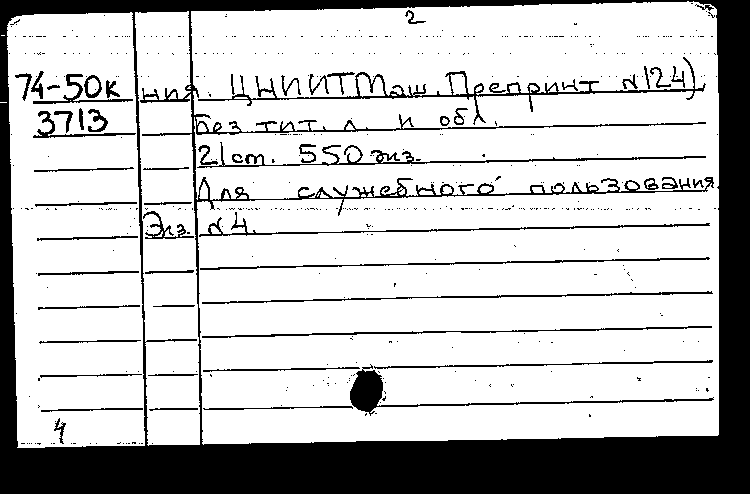 2
74-50к ния. ЦНИИТМаш. Препринт №124).
3713 Без тит. л. и обл.
21 ст. 550 экз.
Для служебного пользования.
Экз. №4.
4